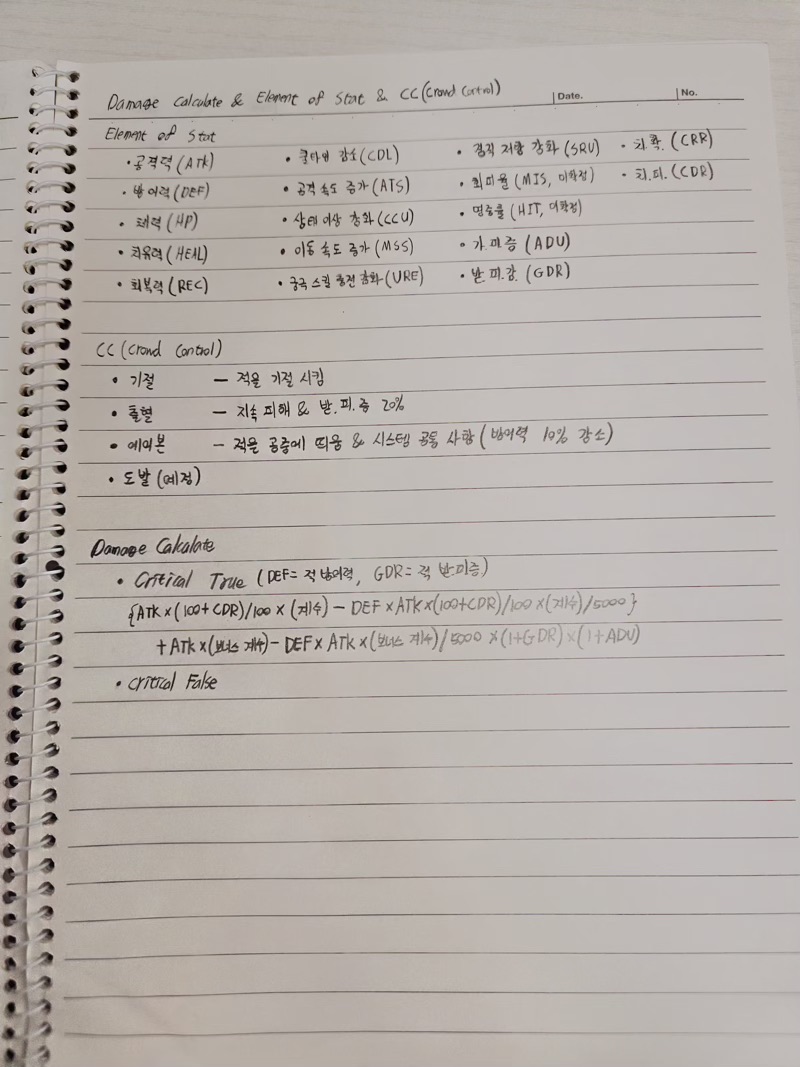 Damage Calculate & Element of Stat & CC (Crowd Control) Date. No.
Element of Stat
• 공격력 (ATK) • 쿨타임 감소 (CDL) • 경직 저항 강화 (SRU) • 치.확. (CRR)
• 방어력 (DEF) • 공격 속도 증가 (ATS) • 회피율 (MIS, 미확정) • 치.피. (CDR)
• 체력 (HP) • 상태 이상 강화 (CCU) • 명중률 (HIT, 미확정)
• 치유력 (HEAL) • 이동 속도 증가 (MSS) • 가.피.증 (ADU)
• 회복력 (REC) • 궁극 스킬 충전 강화 (URE) • 받.피.감. (GDR)
CC (Crowd Control)
• 기절 – 적을 기절 시킴
• 출혈 – 지속 피해 & 받.피.증 20%
• 에어본 – 적을 공중에 띄움 & 시스템 공통 사항 (방어력 10% 감소)
• 도발 (예정)
Damage Calculate
• Critical True (DEF = 적 방어력, GDR = 적 받피증)
{ATK×(100+CDR)/100×(계수) – DEF×ATK×(100+CDR)/100×(계수)/5000}
+ATK×(보너스 계수) – DEF×ATK×(보너스 계수)/5000 ×(1+GDR)×(1+ADU)
• Critical False